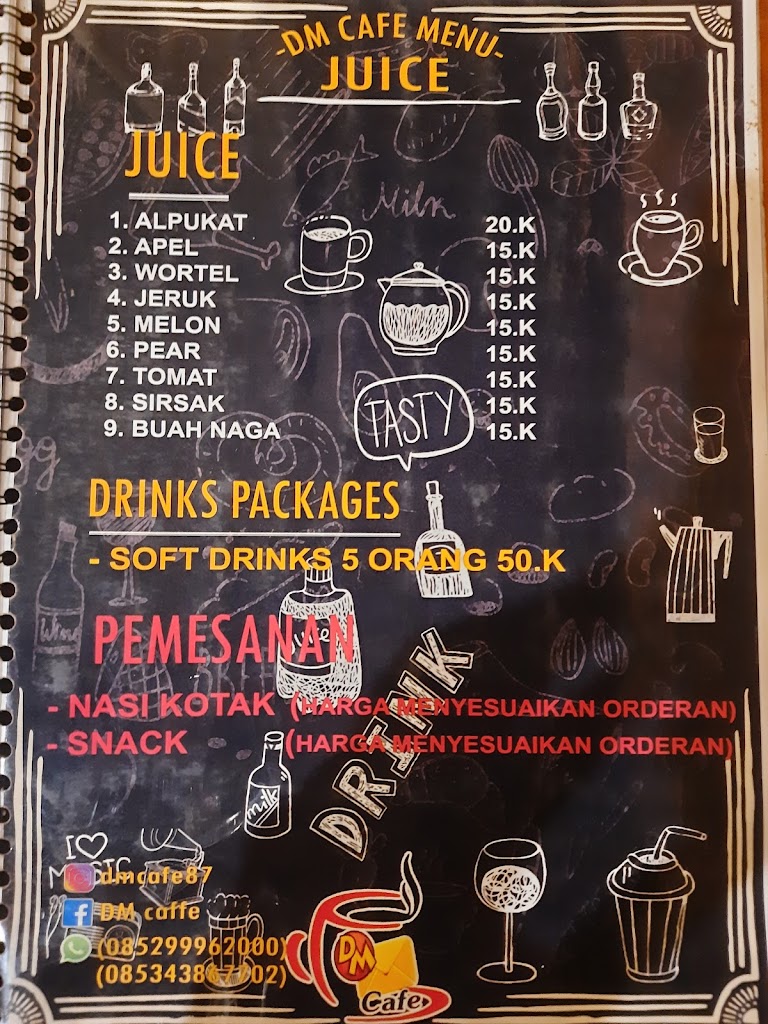 -DM CAFE MENU-
JUICE
JUICE
Milk
1. ALPUKAT 20.K
2. APEL 15.K
3. WORTEL 15.K
4. JERUK 15.K
5. MELON 15.K
6. PEAR 15.K
7. TOMAT 15.K
8. SIRSAK 15.K
9. BUAH NAGA 15.K
TASTY
DRINKS PACKAGES
- SOFT DRINKS 5 ORANG 50.K
Wine
PEMESANAN
- NASI KOTAK (HARGA MENYESUAIKAN ORDERAN)
- SNACK (HARGA MENYESUAIKAN ORDERAN)
DRINK
milk
I
MUSIC
dmcafe87
DM caffe
(085299962000)
DM
Cafe